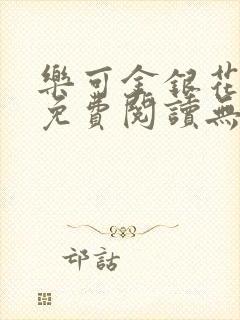 樂可金銀花
免費閱讀無
邙詁